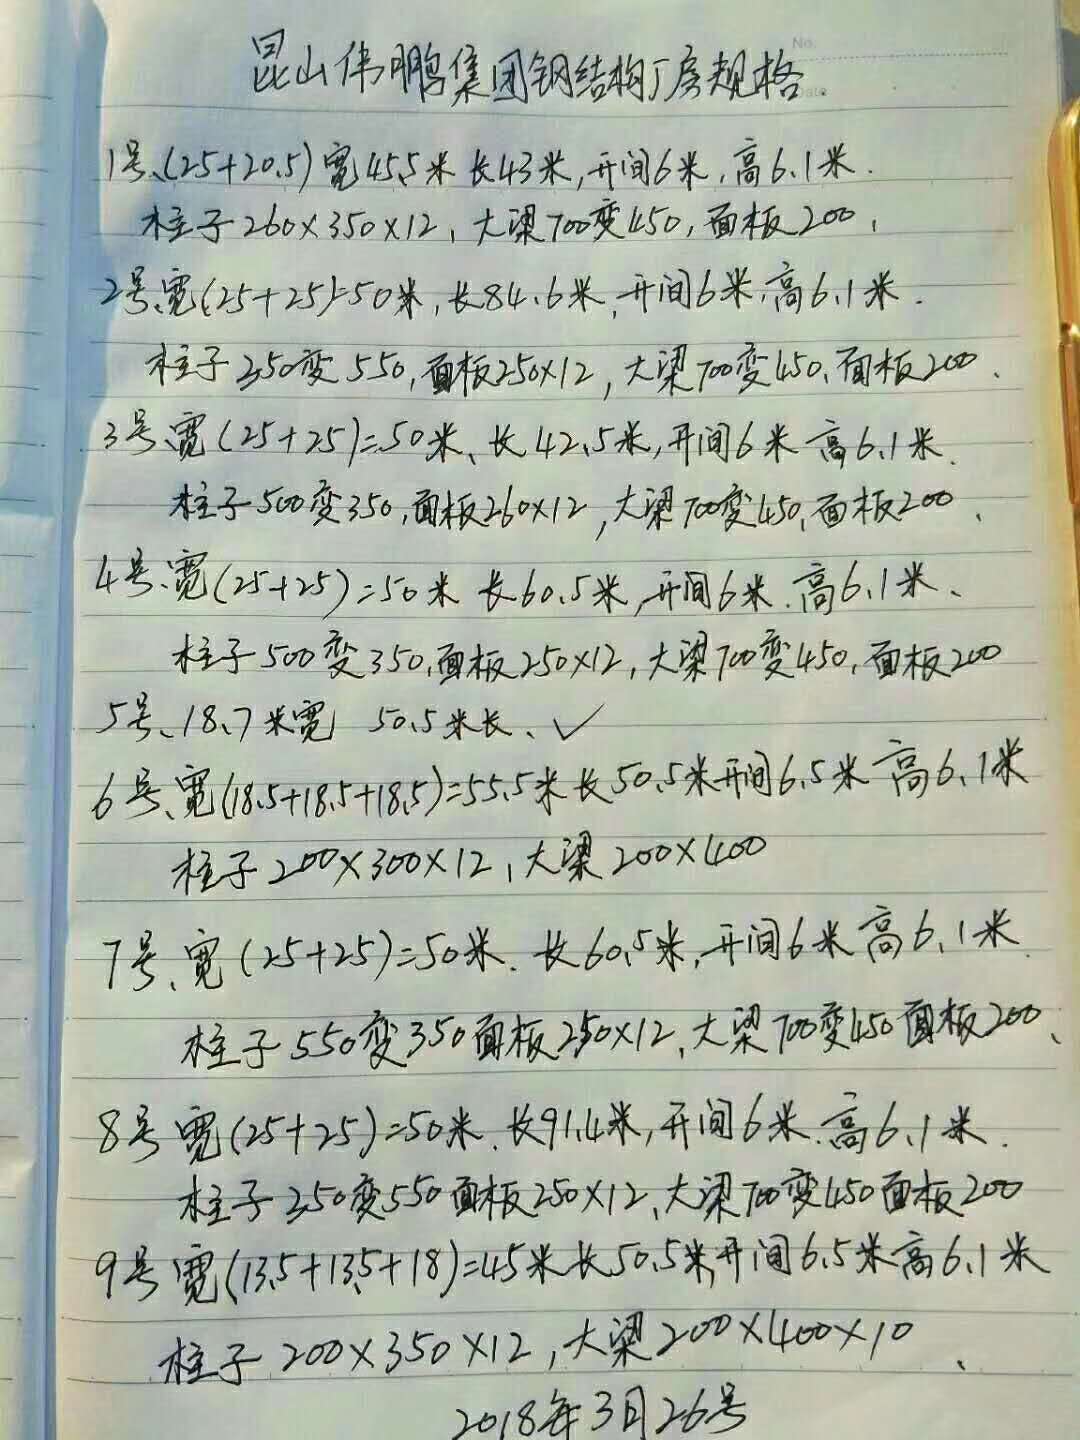 No.
Date.
昆山伟鹏集团钢结构厂房规格
1号、(25+20.5)宽45.5米 长43米,开间6米,高6.1米.
柱子260×350×12、大梁700变450,面板200,
2号、宽(25+25)=50米,长84.6米,开间6米,高6.1米.
柱子350变550,面板250×12,大梁700变450,面板200、
3号、宽(25+25)=50米、长42.5米,开间6米 高6.1米.
柱子500变350,面板260×12,大梁700变450,面板200、
4号、宽(25+25)=50米 长60.5米,开间6米.高6.1米、
柱子500变350,面板250×12,大梁700变450,面板200
5号、18.7米宽 50.5米长、✓
6号、宽(18.5+18.5+18.5)=55.5米长50.5米开间6.5米高6.1米
柱子200×300×12,大梁200×400
7号、宽(25+25)=50米.长60.5米,开间6米高6.1米.
柱子550变350面板250×12、大梁700变450面板200、
8号宽(25+25)=50米.长91.4米,开间6米.高6.1米.
柱子350变550面板250×12、大梁700变450面板200
9号宽(13.5+13.5+18)=45米长50.5米,开间6.5米高6.1米
柱子200×350×12,大梁200×400×10、
2018年3月26号